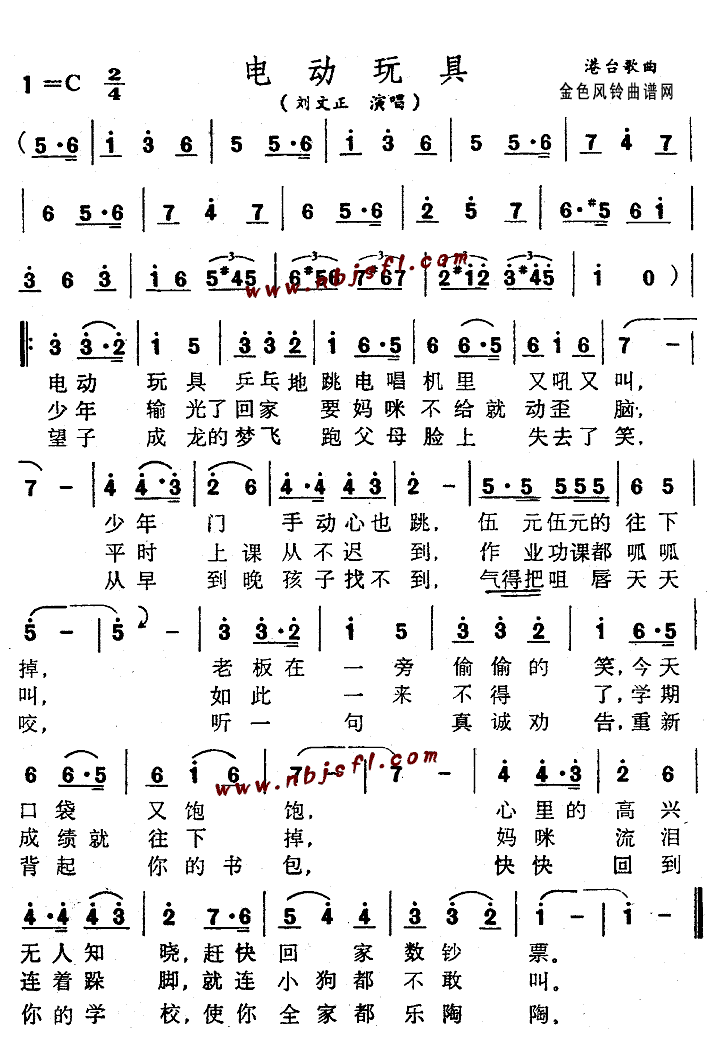 电动玩具
港台歌曲
1=C 2/4
(刘文正 演唱)
金色风铃曲谱网
(5·6 | i 3 6 | 5 5·6 | i 3 6 | 5 5·6 | 7 4 7 |
6 5·6 | 7 4 7 | 6 5·6 | 2 5 7 | 6·#5 6 i |
3 6 3 | i 6 5#45 | 6#56 7#67 | 2#12 3#45 | i 0 )
www.nbjsfl.com
|: 3 3·2 | i 5 | 3 3 2 | i 6·5 | 6 6·5 | 6 i 6 | 7 - |
电动 玩具 乒乓地 跳电唱机里 又吼又 叫,
少年 输光了回家 要妈咪不给就 动歪 脑,
望子 成龙的梦飞 跑父母脸上 失去了 笑,
7 - | 4 4·3 | 2 6 | 4·4 4 3 | 2 - | 5·5 555 | 6 5 |
少年 门 手动心也 跳, 伍元伍元的 往下
平时 上课从不迟 到, 作业功课都 呱呱
从早 到晚孩子找不 到, 气得把咀唇 天天
5 - | 5 | 3 3·2 | i 5 | 3 3 2 | i 6·5 |
掉, 老板在 一旁 偷偷的 笑,今天
叫, 如此 一来 不得 了,学期
咬, 听一 句 真诚劝 告,重新
6 6·5 | 6 i 6 | 7 - | 7 - | 4 4·3 | 2 6 |
www.nbjsfl.com
口袋 又饱 饱, 心里的 高兴
成绩就 往下 掉, 妈咪 流泪
背起 你的书 包, 快快 回到
4·4 4 3 | 2 7·6 | 5 4 | 3 2 | i - | i - ||
无人知 晓,赶快 回家 数钞 票。
连着跺 脚,就连 小狗都 不敢 叫。
你的学 校,使你 全家都 乐陶 陶。